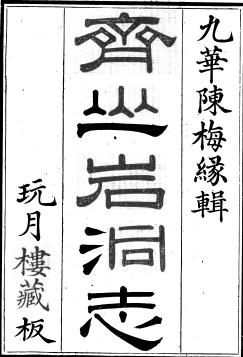 九華陳梅緣輯
齊山岩洞志
玩月樓藏板